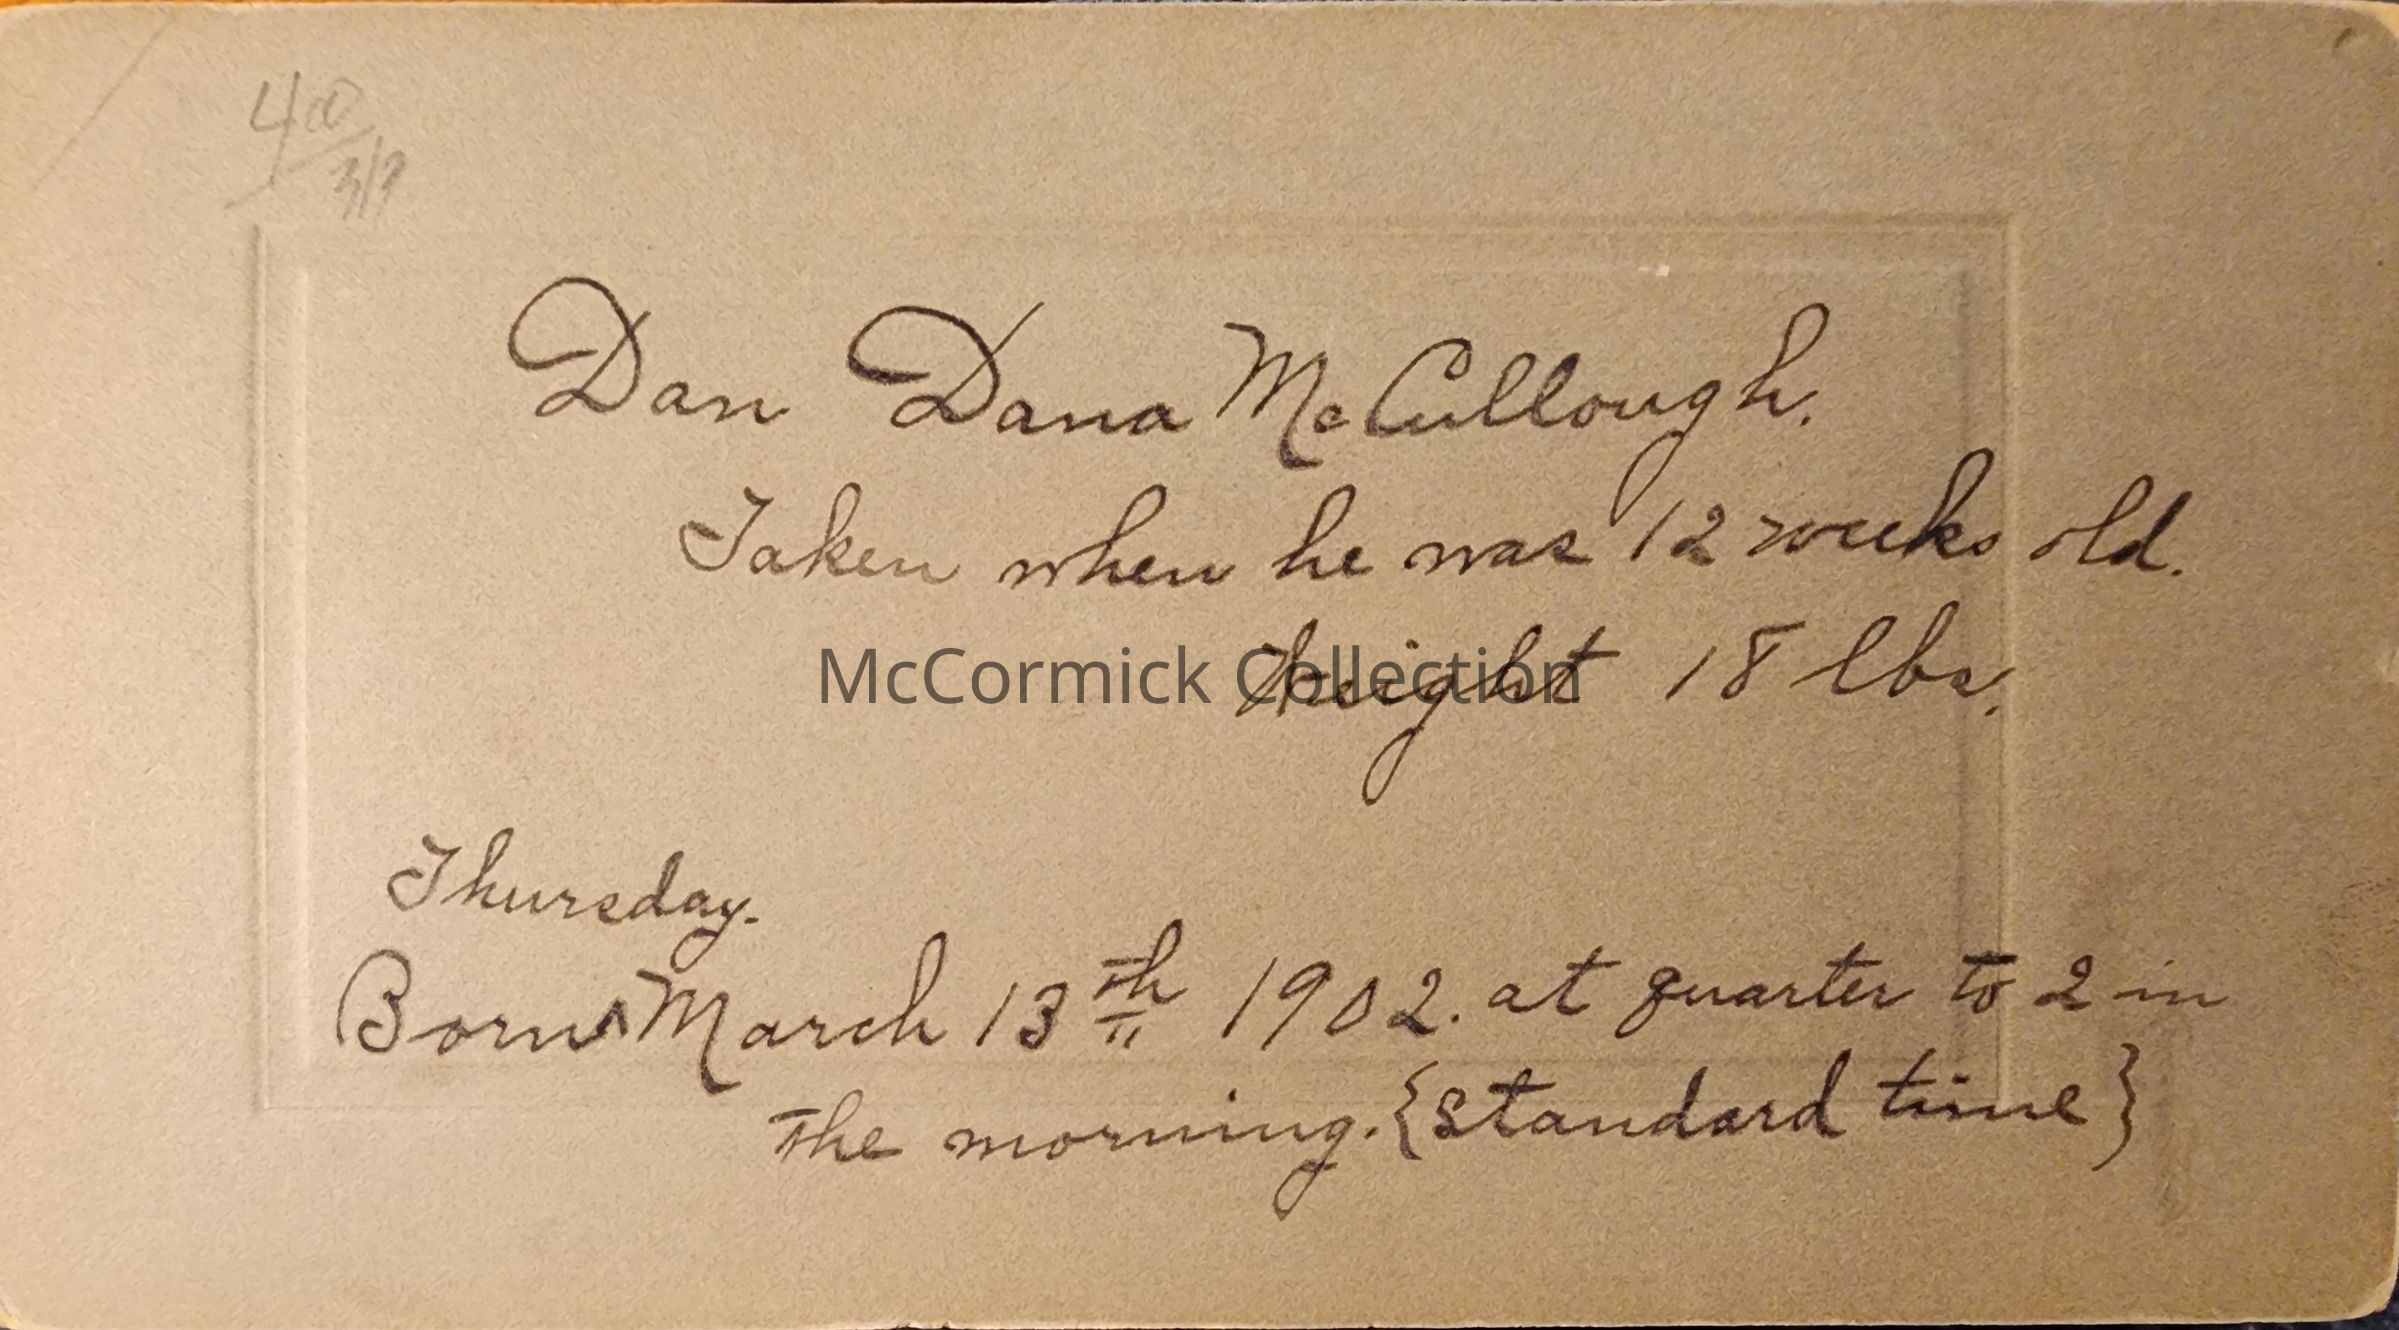 400
3/9
Dan Dana McCullough.
Taken when he was 12 weeks old.
Weight 18 lbs.
McCormick Collection
Thursday.
Born ^ March 13th 1902. at quarter to 2 in
the morning. {Standard time}